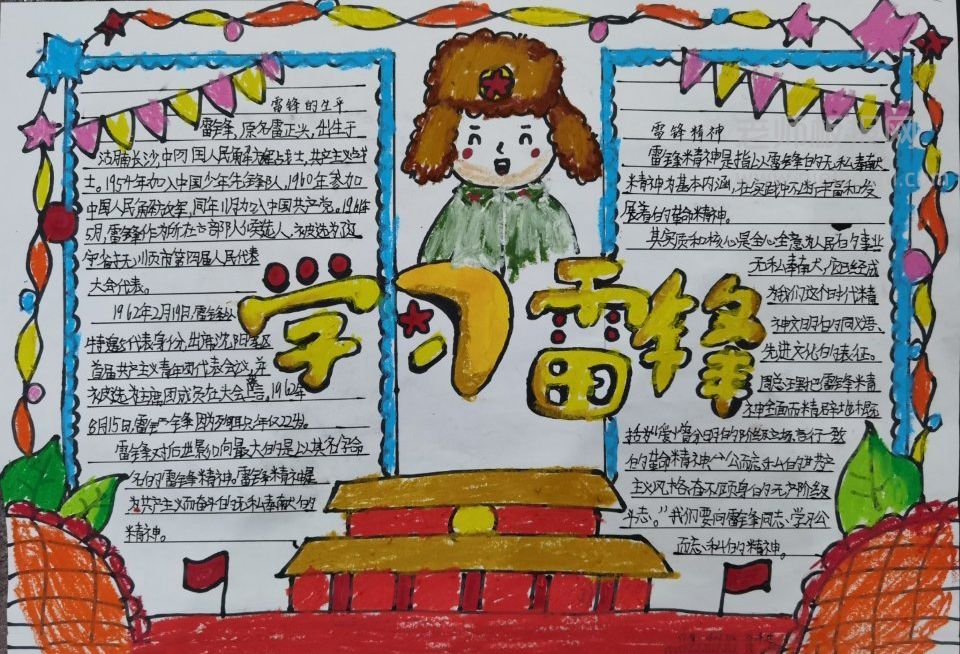 雷锋的生平
雷锋，原名雷正兴，出生于
湖南长沙，中国人民解放军战士，共产主义战
士。1954年加入中国少年先锋队，1960年参加
中国人民解放军，同年11月加入中国共产党。1961年
5月，雷锋作为所在部队候选人，被选为辽
宁省抚顺市第四届人民代表
大会代表。
1962年2月19日，雷锋以
特邀代表身份，出席沈阳军区
首届共产主义青年团代表会议，并
被选为主席团成员在大会
发言，1962年
8月15日，雷锋因公殉职，年仅22岁。
雷锋对后世影响最大的是以其名字命
名的雷锋精神。雷锋精神是
为共产主义而奋斗的无私奉献的
精神。
学习雷锋
雷锋精神
雷锋精神是指以雷锋的无私奉献
精神为基本内涵，在实践中不断丰富和发
展着的革命精神。
其实质和核心是全心全意为人民的事业
无私奉献，它已经成
为我们这个时代精
神文明的同义语、
先进文化的表征。
周总理把雷锋精神
全面而精辟地概
括为“爱憎分明的阶级立场、言行一致
的革命精神、公而忘私的共产
主义风格、奋不顾身的无产阶级
斗志。”我们要向雷锋同志、学习公
而忘私的精神。